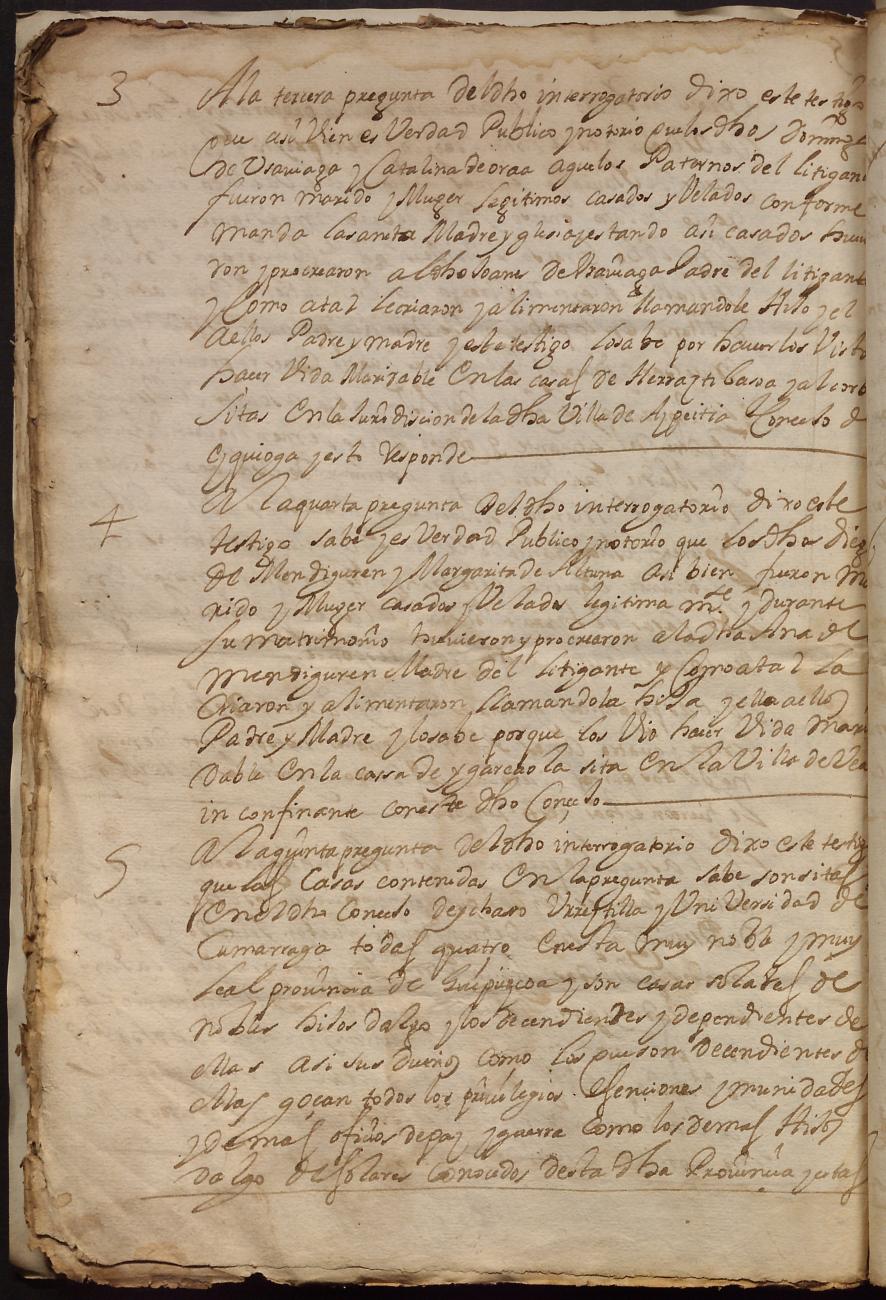 3 A la tercera pregunta del dho interrogatorio dixo este testigo
que asi vien es Verdad Publico y notorio que los dhos doming
de Vsaviaga y Catalina de oraa aguelos Paternos del litigan
fueron marido y Muger legitimos casados y Velados conforme
manda la santa Madre yglesia y estando asi casados huui
ron y procrearon al dho Joanes de Vsauiaga Padre del litigante
y Como a tal le criaron y alimentaron llamandole Hijo y el
a ellos Padre y madre y este testigo lo sabe por hauerlos Visto
hacer Vida Maridable En las casas de
sitas En la Jurisdiscion de la dha Villa de Azpeitia Concejo d
eyquioga y esto Responde
4 A la quarta pregunta Del dho interrogatorio dixo este
testigo sabe y es Verdad Publico y notorio que los dhos dieg
de Mendiguren y Margarita de Altuna asi bien fueron ma
rido y Muger casados y Velados legitima mte y durante
su matrimonio huuieron y procrearon a la dha Ana de
mendiguren Madre del litigante y Como a tal la
Criaron y alimentaron llamandola hija y ella a ellos
Padre y Madre y lo sabe porque los Vio hacer Vida mari
Dable En la cassa de ygarçaola sita En la Villa de
in confinante con este dho Conçejo
5 A la quinta pregunta del dho interrogatorio dixo este testig
que las Casas contenidas En la pregunta sabe son sitas
En el dho Concejo de ychaso Vrrestilla y Universidad de
Cumarraga todas quatro En esta muy noble y muy
Leal provincia de Guipuzcoa y son casas solares de
nobles hijos dalgo y los decendientes y dependientes de
ellas asi sus dueños como los que son Decendientes d
ellas goçan todos los priuilegios esenciones ymunidades
y demas ofiçios de paz y guerra Como los demas Hijos
dalgo de solares Conocidos desta dha Prouincia y estas